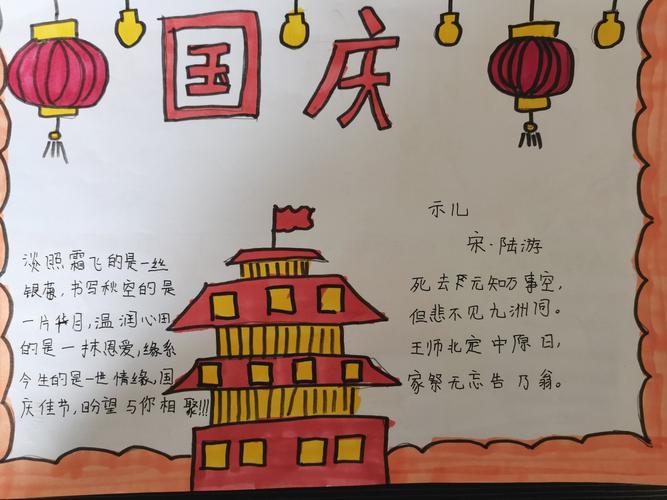 国庆
淡照霜飞的是一丝
银,书写秋空的是
一片华月,温润心田
的是一抹恩爱,缘系
今生的是一世情缘,国
庆佳节,盼望与你相聚!!!
示儿
宋·陆游
死去元知万事空,
但悲不见九洲同。
王师北定中原日,
家祭无忘告乃翁。